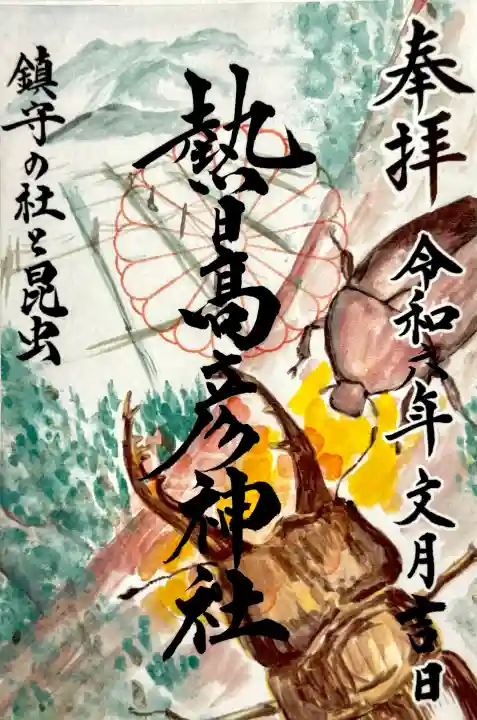 奉拝
令和六年文月吉日
熱日高彦神社
鎮守の社と昆虫